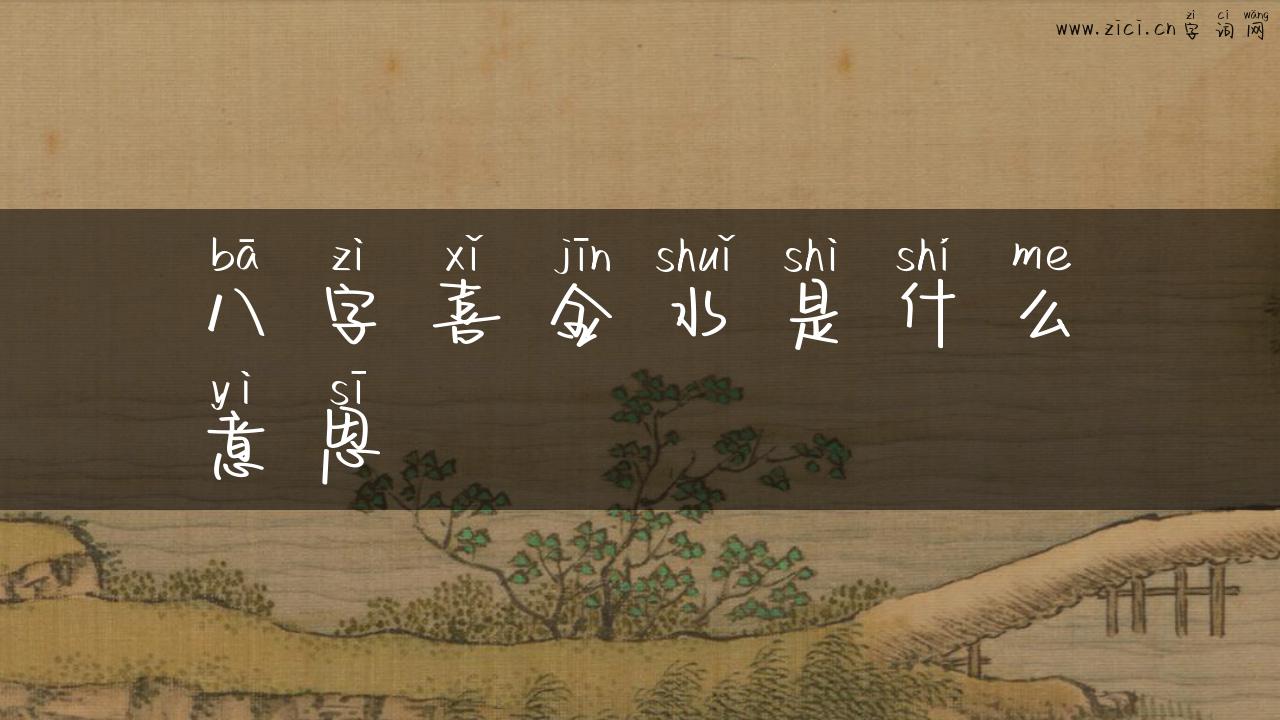 zì cí wǎng
www.zici.cn字词网
bā zì xǐ jīn shuǐ shì shí me
八字喜金水是什么
yì sī
意思